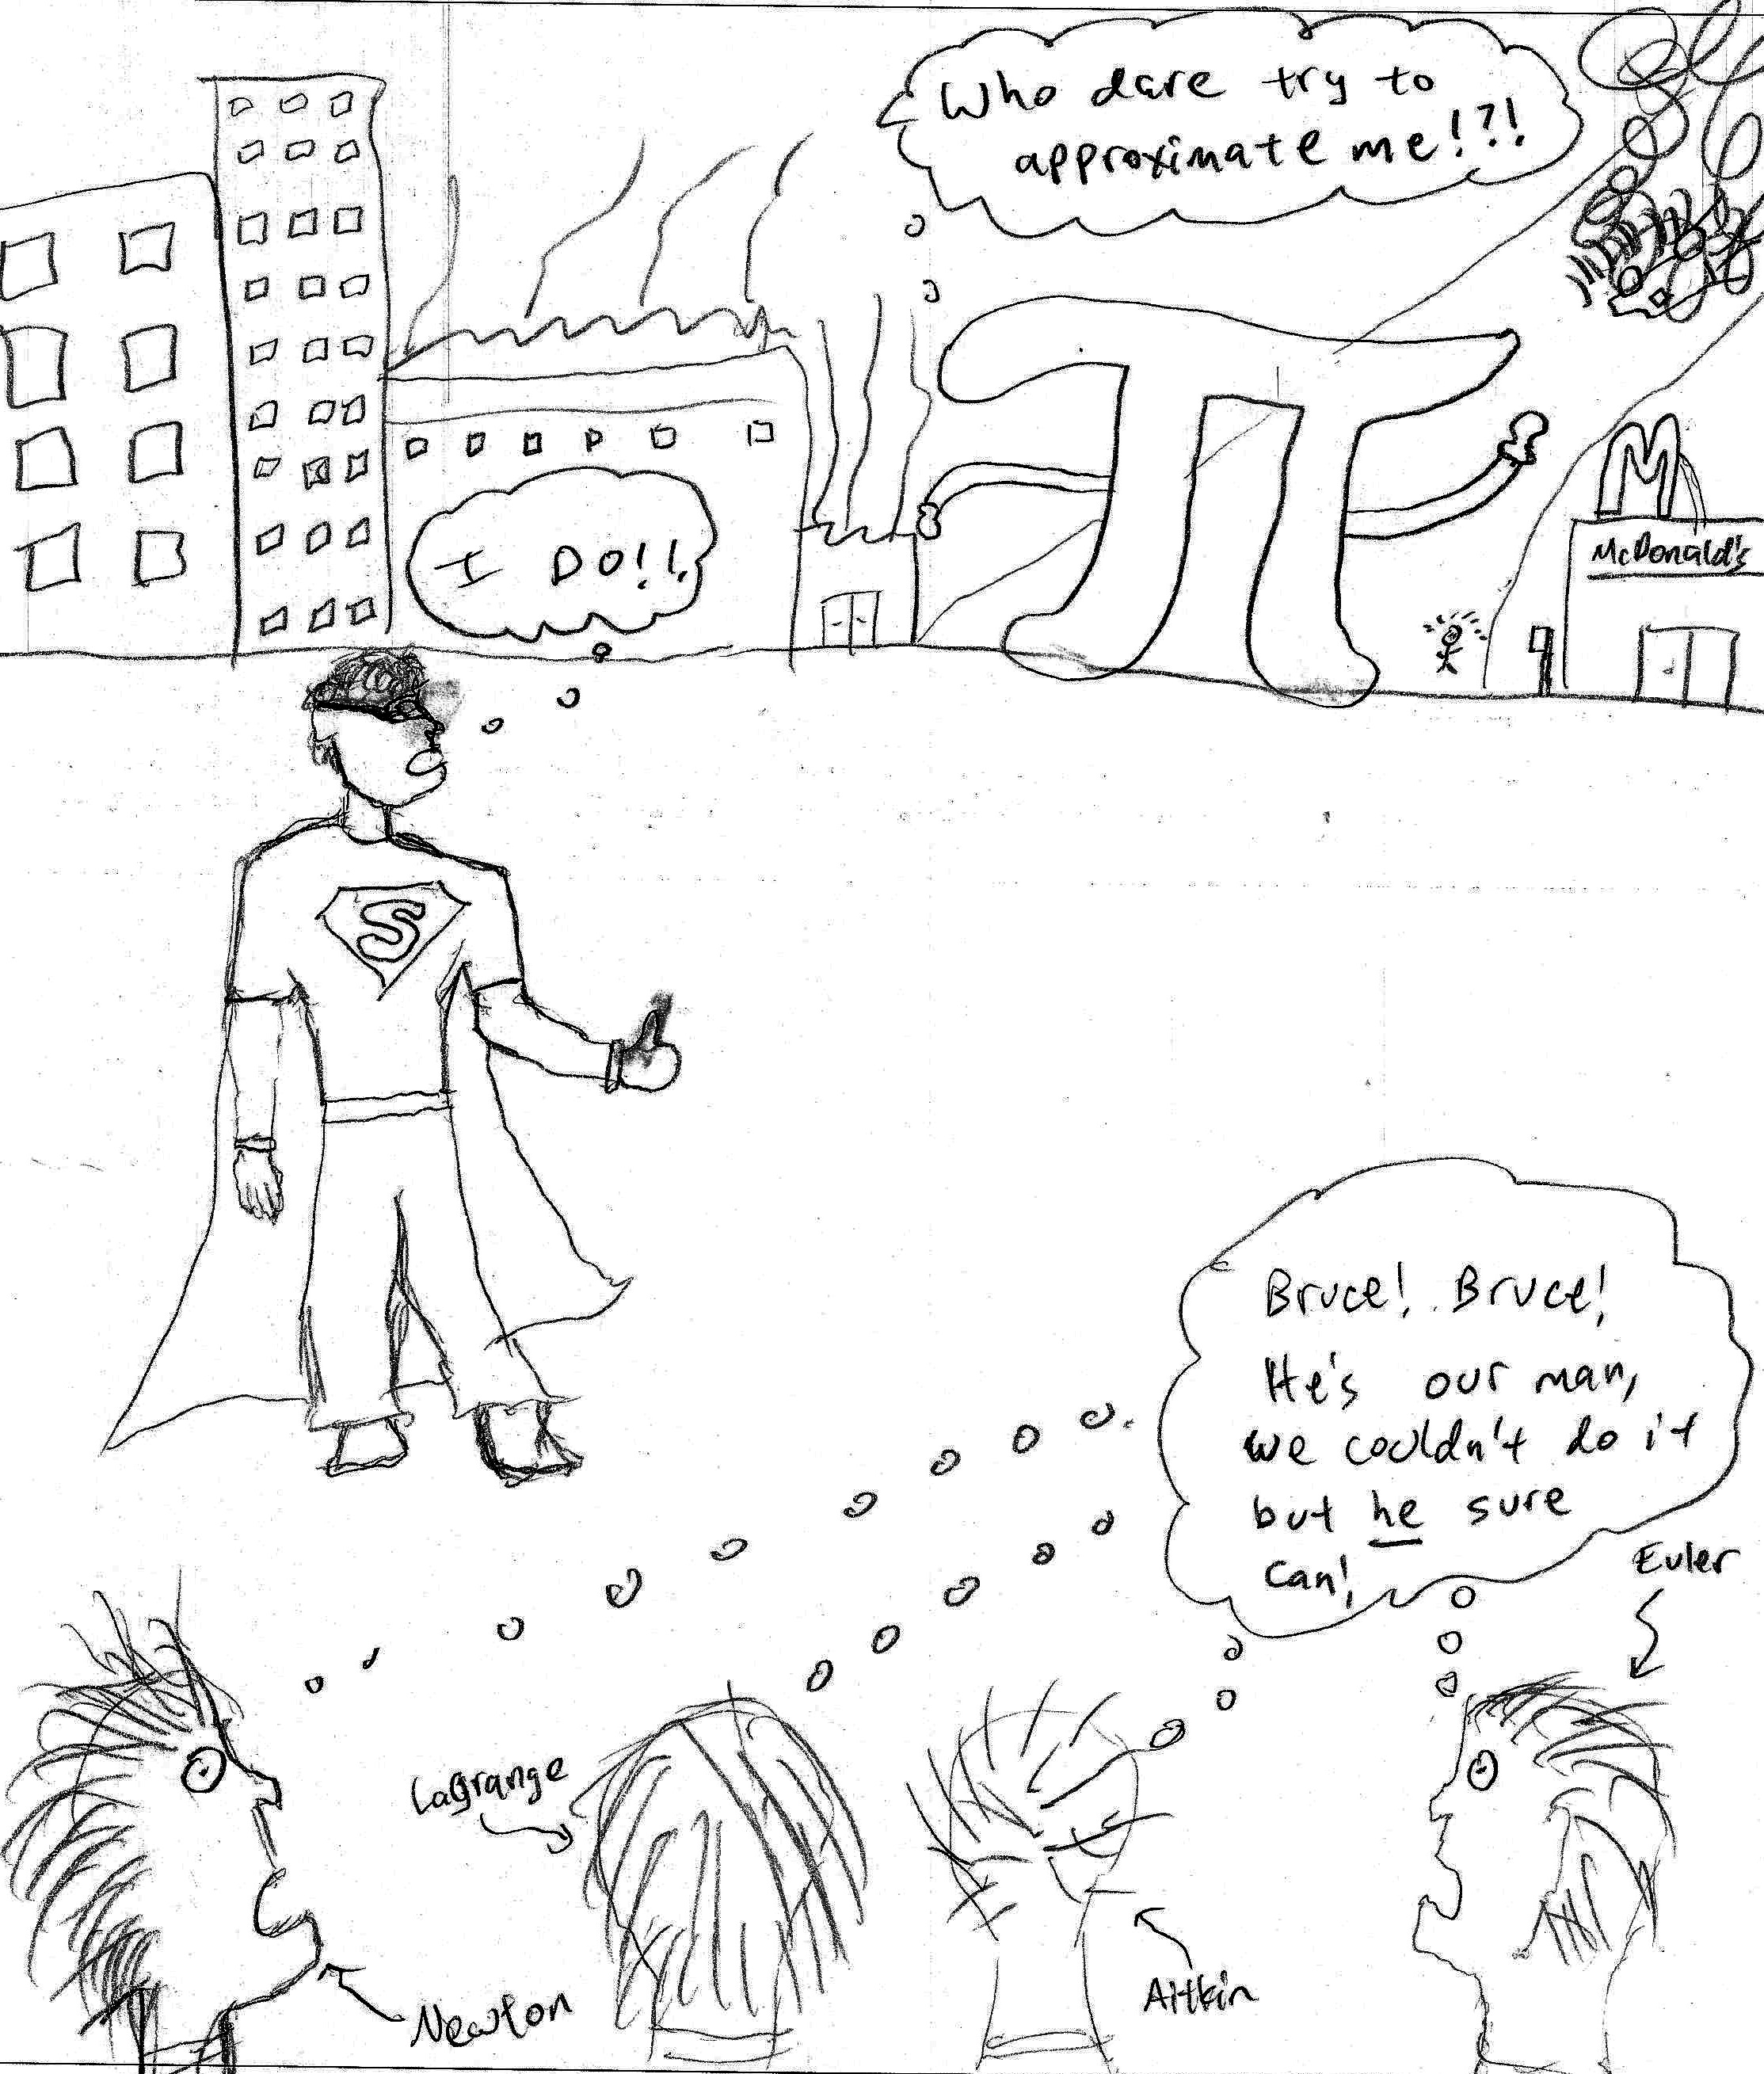 Who dare try to
approximate me!?!
M
McDonald's
I DO!!
S
Bruce! Bruce!
He's our man,
we couldn't do it
but he sure
can!
Euler
LaGrange
Newton
Aitkin